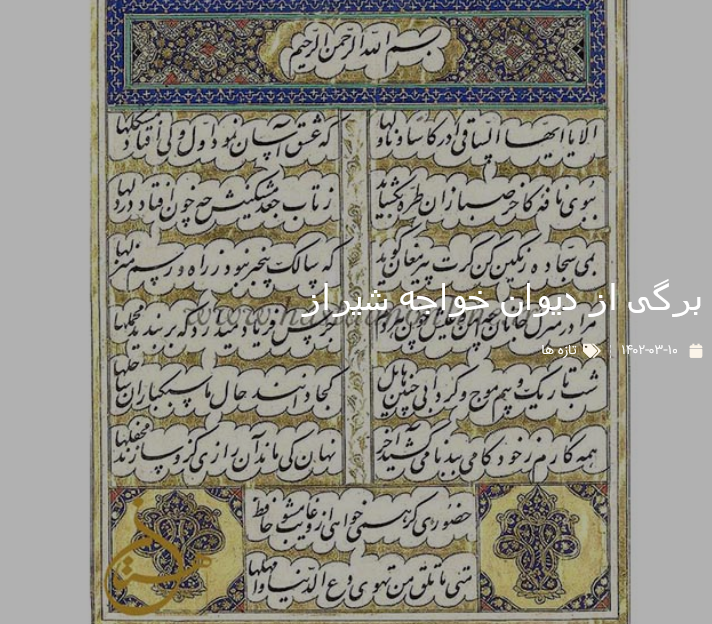 بسم الله الرحمن الرحیم
الا یا ایها الساقی ادر کاسا و ناولها که عشق آسان نمود اول ولی افتاد مشکلها
ببوی نافه کاخر صبا زان طره بگشاید ز تاب جعد مشکینش چه خون افتاد در دلها
بمی سجاده رنگین کن گرت پیر مغان گوید که سالک بیخبر نبود ز راه و رسم منزلها
برگی از دیوان خواجه شیراز
مرا در منزل جانان چه امن عیش چون
جرس فریاد میدارد که بربندید محملها
۱۴۰۲-۰۳-۱۰ تازه ها
شب تاریک و بیم موج و گردابی چنین هایل کجا دانند حال ما سبکباران ساحلها
همه کارم ز خود کامی ببدنامی کشید آخر نهان کی ماند آن رازی کزو سازند محفلها
حضوری گر همی خواهی ازو غایب مشو حافظ
متی ما تلق من تهوی دع الدنیا و اهملها